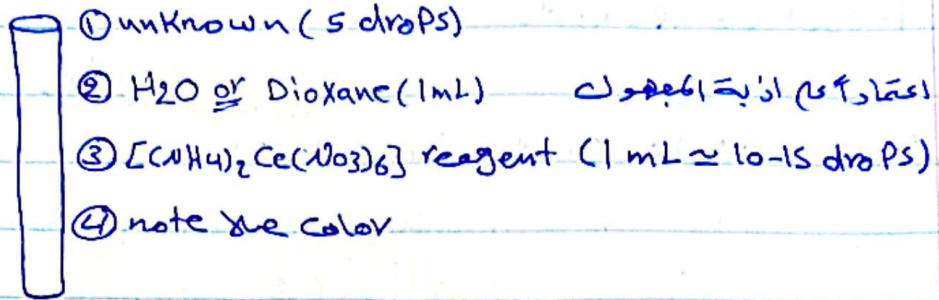 ① unknown (5 drops)
② H2O or Dioxane (1mL) اعتماداً على اذابة المجهول
③ [(NH4)2 Ce(NO3)6} reagent (1 mL ≃ 10-15 drops)
④ note the color